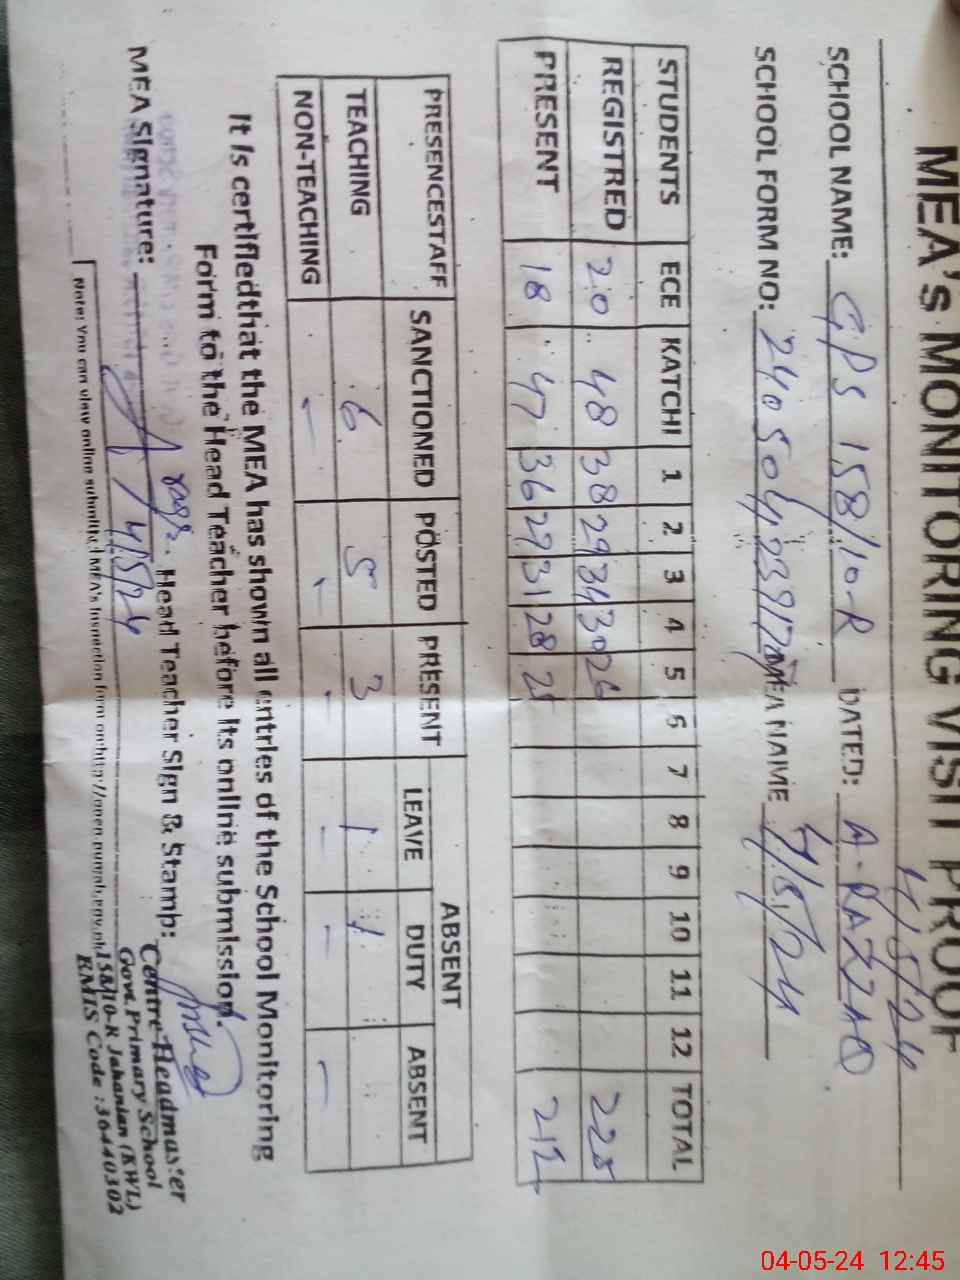 MEA's MONITORING VISIT PROOF
4/5/24
SCHOOL NAME: GPS 158/10-R DATED: A. RAZZAQ
SCHOOL FORM NO: MEA NAIME 4/5/24
STUDENTS ECE KATCHI 1 2 3 4 5 6 7 8 9 10 11 12 TOTAL
REGISTRED 20 48 38 29 34 30 26 225
PRESENT 18 47 36 29 31 28 212
ABSENT
PRESENCESTAFF SANCTIONED POSTED PRESENT LEAVE DUTY ABSENT
TEACHING 6 5 3 1 1
NON-TEACHING - - - - - -
It is certifiedthat the MEA has shown all entries of the School Monitoring
Form to the Head Teacher before its online submission.
MEA Signature: Head Teacher Sign & Stamp:
4/5/24
Centre Headmaster
Govt. Primary School
158/10-R Jahanian (KWL)
EMIS Code : 36440302
Note: You can view online submitted MEA's Inspection form on http://open.punjab.gov.pk
04-05-24 12:45